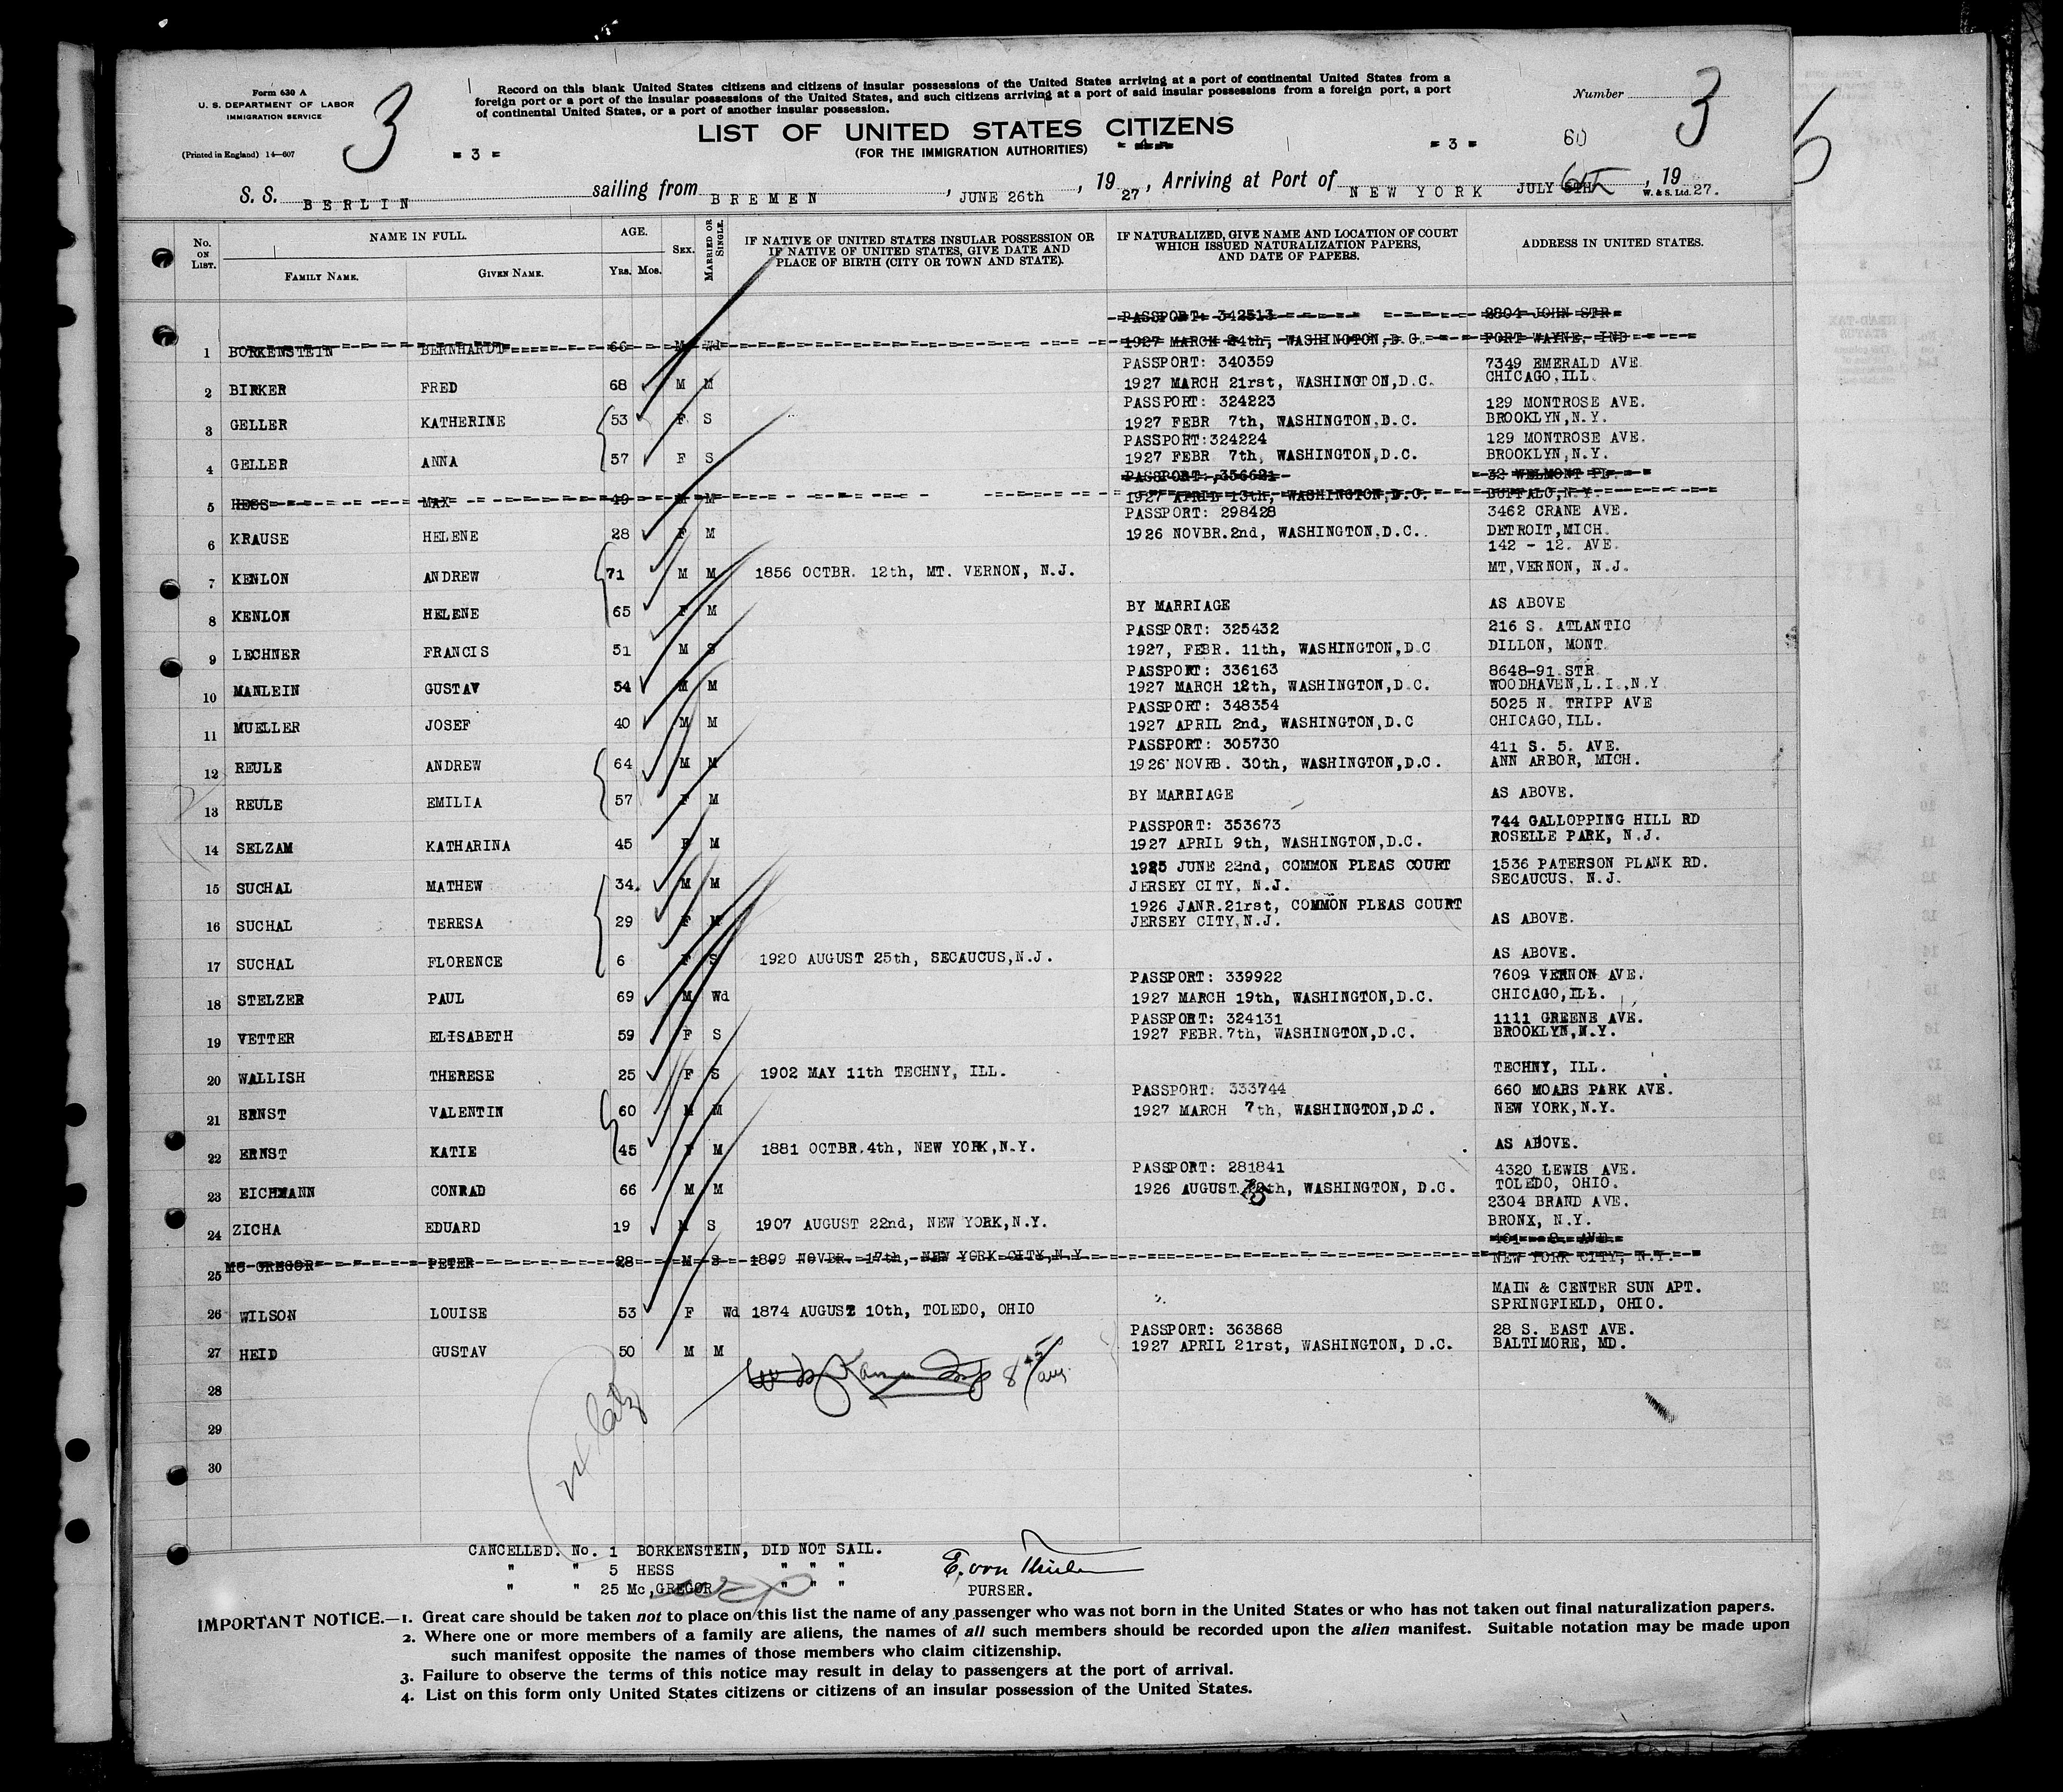 Form 630 A
U. S. DEPARTMENT OF LABOR
IMMIGRATION SERVICE
(Printed in England) 14—607
3
= 3 =
Record on this blank United States citizens and citizens of insular possessions of the United States arriving at a port of continental United States from a
foreign port or a port of the insular possessions of the United States, and such citizens arriving at a port of said insular possessions from a foreign port, a port
of continental United States, or a port of another insular possession.
LIST OF UNITED STATES CITIZENS
(FOR THE IMMIGRATION AUTHORITIES)
= 3 =
Number
60
3
6
S. S. BERLIN sailing from BREMEN, JUNE 26th, 1927, Arriving at Port of NEW YORK JULY 5TH 6th, 1927.
W. & S. Ltd.
No. ON LIST.
NAME IN FULL.
FAMILY NAME.
GIVEN NAME.
AGE.
YRS. MOS.
SEX.
MARRIED OR SINGLE.
IF NATIVE OF UNITED STATES INSULAR POSSESSION OR
IF NATIVE OF UNITED STATES, GIVE DATE AND
PLACE OF BIRTH (CITY OR TOWN AND STATE).
IF NATURALIZED, GIVE NAME AND LOCATION OF COURT
WHICH ISSUED NATURALIZATION PAPERS,
AND DATE OF PAPERS.
ADDRESS IN UNITED STATES.
PASSPORT: 342513 2804 JOHN STR
1 BORKENSTEIN BERNHARDT 66 M Wd 1927 MARCH 24th, WASHINGTON,D.C. FORT WAYNE, IND
PASSPORT: 340359 7349 EMERALD AVE.
2 BIRKER FRED 68 M M 1927 MARCH 21rst, WASHINGTON,D.C. CHICAGO,ILL.
PASSPORT: 324223 129 MONTROSE AVE.
3 GELLER KATHERINE 53 F S 1927 FEBR 7th, WASHINGTON,D.C. BROOKLYN,N.Y.
PASSPORT:324224 129 MONTROSE AVE.
4 GELLER ANNA 57 F S 1927 FEBR 7th, WASHINGTON,D.C. BROOKLYN,N.Y.
PASSPORT: 356621 32 WELMONT PL.
5 HESS MAX 49 M M 1927 APRIL 13th, WASHINGTON,D.C. BUFFALO,N.Y.
PASSPORT: 298428 3462 CRANE AVE.
6 KRAUSE HELENE 28 F M 1926 NOVBR.2nd, WASHINGTON,D.C.. DETROIT,MICH.
142 - 12. AVE.
7 KENLON ANDREW 71 M M 1856 OCTBR. 12th, MT. VERNON, N.J. MT,VERNON, N.J.
8 KENLON HELENE 65 F M BY MARRIAGE AS ABOVE
PASSPORT: 325432 216 S. ATLANTIC
9 LECHNER FRANCIS 51 M S 1927, FEBR. 11th, WASHINGTON,D.C DILLON, MONT.
PASSPORT: 336163 8648-91.STR.
10 MANLEIN GUSTAV 54 M M 1927 MARCH 12th, WASHINGTON,D.C. WOODHAVEN,L.I.,N.Y
PASSPORT: 348354 5025 N. TRIPP AVE
11 MUELLER JOSEF 40 M M 1927 APRIL 2nd, WASHINGTON,D.C CHICAGO,ILL.
PASSPORT: 305730 411 S. 5. AVE.
12 REULE ANDREW 64 M M 1926 NOVRB. 30th, WASHINGTON,D.C. ANN ARBOR, MICH.
13 REULE EMILIA 57 F M BY MARRIAGE AS ABOVE.
PASSPORT: 353673 744 GALLOPPING HILL RD
14 SELZAM KATHARINA 45 F M 1927 APRIL 9th, WASHINGTON,D.C. ROSELLE PARK, N.J.
1925 JUNE 22nd, COMMON PLEAS COURT 1536 PATERSON PLANK RD.
15 SUCHAL MATHEW 34. M M JERSEY CITY, N.J. SECAUCUS. N.J.
1926 JANR.21rst, COMMON PLEAS COURT
16 SUCHAL TERESA 29 F M JERSEY CITY,N.J. AS ABOVE.
17 SUCHAL FLORENCE 6 F S 1920 AUGUST 25th, SECAUCUS,N.J. AS ABOVE.
PASSPORT: 339922 7609 VERNON AVE.
18 STELZER PAUL 69 M Wd 1927 MARCH 19th, WASHINGTON,D.C. CHICAGO,ILL.
PASSPORT: 324131 1111 GREENE AVE.
19 VETTER ELISABETH 59 F S 1927 FEBR.7th, WASHINGTON,D.C. BROOKLYN,N.Y.
20 WALLISH THERESE 25 F S 1902 MAY 11th TECHNY, ILL. TECHNY, ILL.
PASSPORT: 333744 660 MOARS PARK AVE.
21 ERNST VALENTIN 60 M M 1927 MARCH 7th, WASHINGTON,D.C. NEW YORK,N.Y.
22 ERNST KATIE 45 F M 1881 OCTBR.4th, NEW YORK,N.Y. AS ABOVE.
PASSPORT: 281841 4320 LEWIS AVE.
23 EICHMANN CONRAD 66 M M 1926 AUGUST th, WASHINGTON, D.C. TOLEDO, OHIO.
2304 BRAND AVE.
24 ZICHA EDUARD 19 M S 1907 AUGUST 22nd, NEW YORK,N.Y. BRONX, N.Y.
AVE.
25 MC GREGOR PETER 28 M S 1899 NOVBR. 17th, NEW YORK CITY,N.Y NEW YORK CITY, N.Y.
MAIN & CENTER SUN APT.
26 WILSON LOUISE 53 F Wd 1874 AUGUST 10th, TOLEDO, OHIO SPRINGFIELD, OHIO.
PASSPORT: 363868 28 S. EAST AVE.
27 HEID GUSTAV 50 M M 1927 APRIL 21rst, WASHINGTON, D.C. BALTIMORE, MD.
28
29
30
CANCELLED. No. 1 BORKENSTEIN, DID NOT SAIL.
" " 5 HESS " " "
" " 25 Mc,GREGOR " " "
E. von
PURSER.
IMPORTANT NOTICE.—1. Great care should be taken not to place on this list the name of any passenger who was not born in the United States or who has not taken out final naturalization papers.
2. Where one or more members of a family are aliens, the names of all such members should be recorded upon the alien manifest. Suitable notation may be made upon
such manifest opposite the names of those members who claim citizenship.
3. Failure to observe the terms of this notice may result in delay to passengers at the port of arrival.
4. List on this form only United States citizens or citizens of an insular possession of the United States.